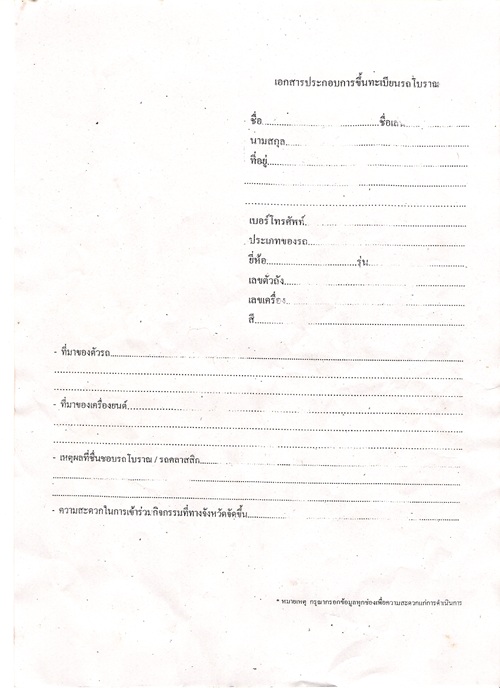 เอกสารประกอบการขึ้นทะเบียนรถโบราณ
ชื่อ........................................ชื่อเล่น........................
นามสกุล............................................................
ที่อยู่..................................................................
............................................................................
............................................................................
เบอร์โทรศัพท์....................................................
ประเภทของรถ..................................................
ยี่ห้อ..............................รุ่น..............................
เลขตัวถัง............................................................
เลขเครื่อง..........................................................
สี........................................................................
- ที่มาของตัวรถ................................................................................
............................................................................................................
............................................................................................................
- ที่มาของเครื่องยนต์........................................................................
............................................................................................................
............................................................................................................
- เหตุผลที่ชื่นชอบรถโบราณ / รถคลาสสิก............................................
............................................................................................................
............................................................................................................
- ความสะดวกในการเข้าร่วมกิจกรรมที่ทางจังหวัดจัดขึ้น........................
* หมายเหตุ กรุณากรอกข้อมูลทุกช่องเพื่อความสะดวกแก่การดำเนินการ